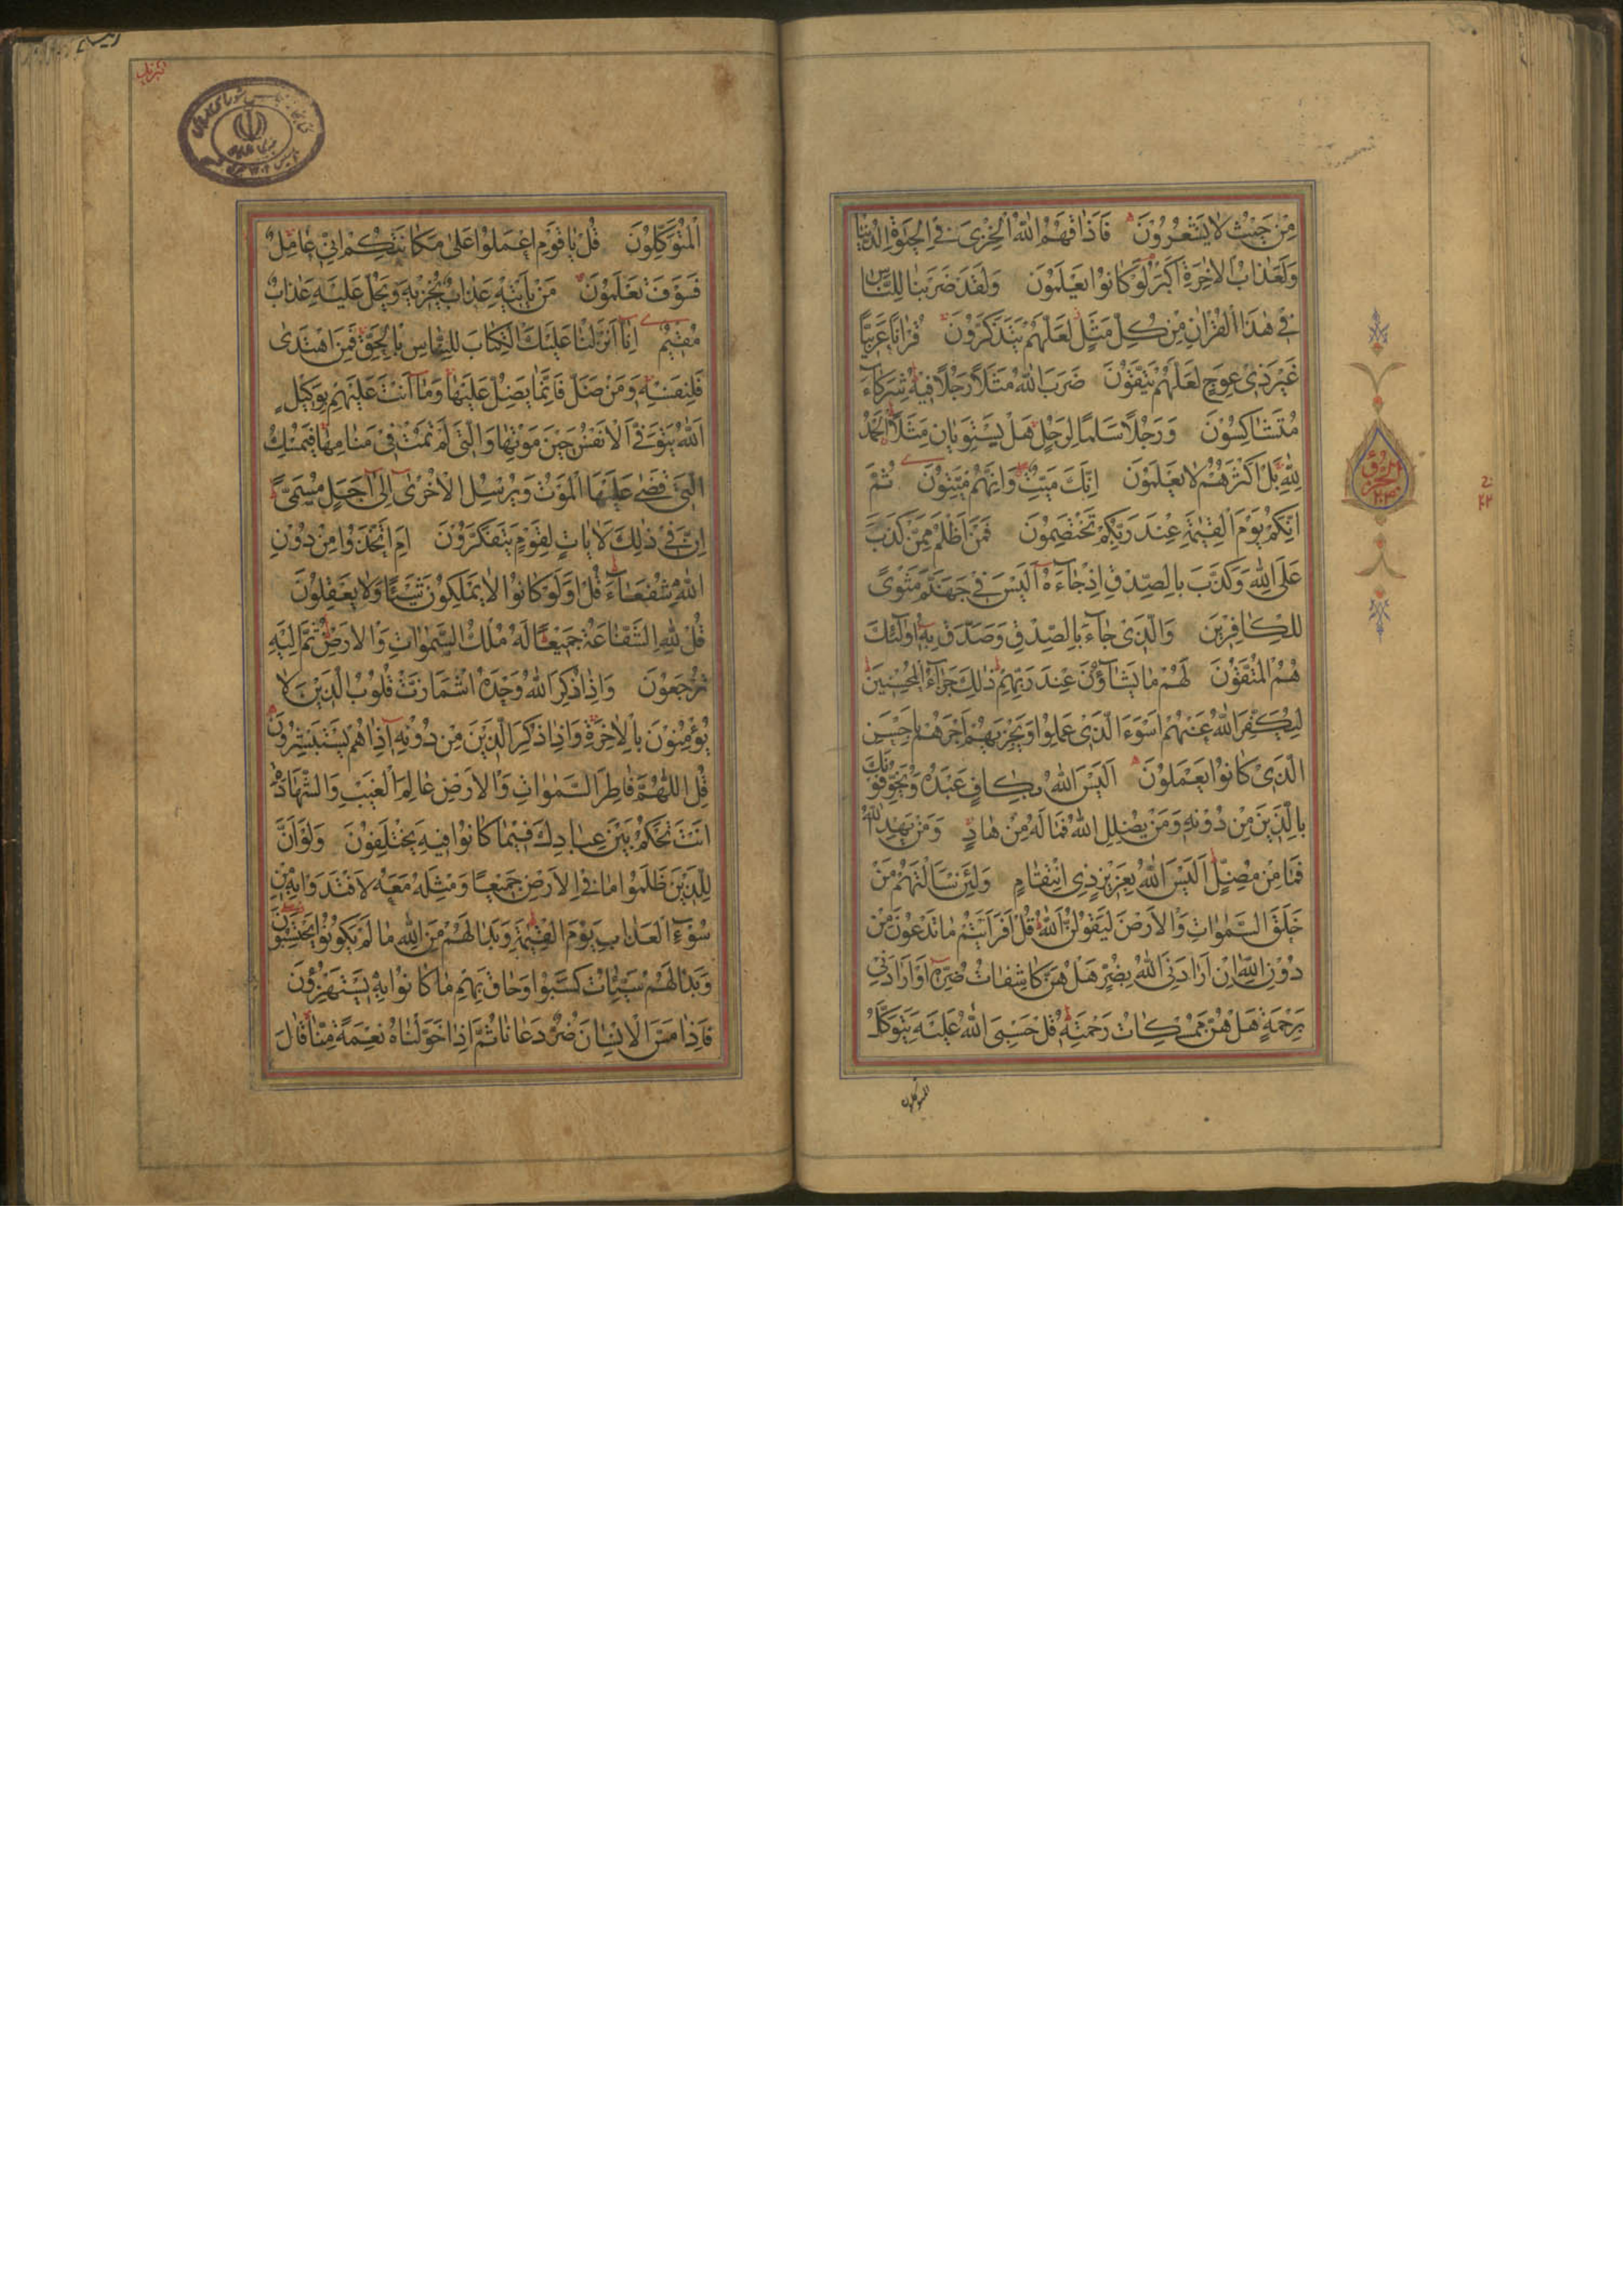 مِنْ حَيْثُ لَا يَشْعُرُونَ فَاَذَاقَهُمُ اللّٰهُ الْخِزْىَ فِى الْحَيٰوةِ الدُّنْيَا
وَلَعَذَابُ الْاٰخِرَةِ اَكْبَرُ لَوْ كَانُوا يَعْلَمُونَ وَلَقَدْ ضَرَبْنَا لِلنَّاسِ
فِى هٰذَا الْقُرْاٰنِ مِنْ كُلِّ مَثَلٍ لَعَلَّهُمْ يَتَذَكَّرُونَ قُرْاٰنًا عَرَبِيًّا
غَيْرَ ذِى عِوَجٍ لَعَلَّهُمْ يَتَّقُونَ ضَرَبَ اللّٰهُ مَثَلًا رَجُلًا فِيهِ شُرَكَاۤءُ
مُتَشَاكِسُونَ وَرَجُلًا سَلَمًا لِرَجُلٍ هَلْ يَسْتَوِيَانِ مَثَلًا اَلْحَمْدُ
لِلّٰهِ بَلْ اَكْثَرُهُمْ لَا يَعْلَمُونَ اِنَّكَ مَيِّتٌ وَاِنَّهُمْ مَيِّتُونَ ثُمَّ
اِنَّكُمْ يَوْمَ الْقِيٰمَةِ عِنْدَ رَبِّكُمْ تَخْتَصِمُونَ فَمَنْ اَظْلَمُ مِمَّنْ كَذَبَ
عَلَى اللّٰهِ وَكَذَّبَ بِالصِّدْقِ اِذْ جَاۤءَهُ اَلَيْسَ فِى جَهَنَّمَ مَثْوًى
لِلْكَافِرِينَ وَالَّذِى جَاۤءَ بِالصِّدْقِ وَصَدَّقَ بِهِ اُولٰۤئِكَ
هُمُ الْمُتَّقُونَ لَهُمْ مَا يَشَاۤؤُنَ عِنْدَ رَبِّهِمْ ذٰلِكَ جَزَاۤءُ الْمُحْسِنِينَ
لِيُكَفِّرَ اللّٰهُ عَنْهُمْ اَسْوَءَ الَّذِى عَمِلُوا وَيَجْزِيَهُمْ اَجْرَهُمْ بِاَحْسَنِ
الَّذِى كَانُوا يَعْمَلُونَ اَلَيْسَ اللّٰهُ بِكَافٍ عَبْدَهُ وَيُخَوِّفُونَكَ
بِالَّذِينَ مِنْ دُونِهِ وَمَنْ يُضْلِلِ اللّٰهُ فَمَا لَهُ مِنْ هَادٍ وَمَنْ يَهْدِ اللّٰهُ
فَمَا مِنْ مُضِلٍّ اَلَيْسَ اللّٰهُ بِعَزِيزٍ ذِى انْتِقَامٍ وَلَئِنْ سَاَلْتَهُمْ مَنْ
خَلَقَ السَّمٰوَاتِ وَالْاَرْضَ لَيَقُولُنَّ اللّٰهُ قُلْ اَفَرَاَيْتُمْ مَا تَدْعُونَ مِنْ
دُونِ اللّٰهِ اِنْ اَرَادَنِىَ اللّٰهُ بِضُرٍّ هَلْ هُنَّ كَاشِفَاتُ ضُرِّهِ اَوْ اَرَادَنِى
بِرَحْمَةٍ هَلْ هُنَّ مُمْسِكَاتُ رَحْمَتِهِ قُلْ حَسْبِىَ اللّٰهُ عَلَيْهِ يَتَوَكَّلُ
المتوكلون
الْمُتَوَكِّلُونَ قُلْ يَا قَوْمِ اعْمَلُوا عَلٰى مَكَانَتِكُمْ اِنِّى عَامِلٌ
فَسَوْفَ تَعْلَمُونَ مَنْ يَاْتِيهِ عَذَابٌ يُخْزِيهِ وَيَحِلُّ عَلَيْهِ عَذَابٌ
مُقِيمٌ اِنَّا اَنْزَلْنَا عَلَيْكَ الْكِتَابَ لِلنَّاسِ بِالْحَقِّ فَمَنِ اهْتَدٰى
فَلِنَفْسِهِ وَمَنْ ضَلَّ فَاِنَّمَا يَضِلُّ عَلَيْهَا وَمَا اَنْتَ عَلَيْهِمْ بِوَكِيلٍ
اَللّٰهُ يَتَوَفَّى الْاَنْفُسَ حِينَ مَوْتِهَا وَالَّتِى لَمْ تَمُتْ فِى مَنَامِهَا فَيُمْسِكُ
الَّتِى قَضٰى عَلَيْهَا الْمَوْتَ وَيُرْسِلُ الْاُخْرٰى اِلٰى اَجَلٍ مُسَمًّى
اِنَّ فِى ذٰلِكَ لَاٰيَاتٍ لِقَوْمٍ يَتَفَكَّرُونَ اَمِ اتَّخَذُوا مِنْ دُونِ
اللّٰهِ شُفَعَاۤءَ قُلْ اَوَلَوْ كَانُوا لَا يَمْلِكُونَ شَيْئًا وَلَا يَعْقِلُونَ
قُلْ لِلّٰهِ الشَّفَاعَةُ جَمِيعًا لَهُ مُلْكُ السَّمٰوَاتِ وَالْاَرْضِ ثُمَّ اِلَيْهِ
تُرْجَعُونَ وَاِذَا ذُكِرَ اللّٰهُ وَحْدَهُ اشْمَاَزَّتْ قُلُوبُ الَّذِينَ لَا
يُؤْمِنُونَ بِالْاٰخِرَةِ وَاِذَا ذُكِرَ الَّذِينَ مِنْ دُونِهِ اِذَا هُمْ يَسْتَبْشِرُونَ
قُلِ اللّٰهُمَّ فَاطِرَ السَّمٰوَاتِ وَالْاَرْضِ عَالِمَ الْغَيْبِ وَالشَّهَادَةِ
اَنْتَ تَحْكُمُ بَيْنَ عِبَادِكَ فِيمَا كَانُوا فِيهِ يَخْتَلِفُونَ وَلَوْ اَنَّ
لِلَّذِينَ ظَلَمُوا مَا فِى الْاَرْضِ جَمِيعًا وَمِثْلَهُ مَعَهُ لَافْتَدَوْا بِهِ مِنْ
سُوۤءِ الْعَذَابِ يَوْمَ الْقِيٰمَةِ وَبَدَا لَهُمْ مِنَ اللّٰهِ مَا لَمْ يَكُونُوا يَحْتَسِبُونَ
وَبَدَا لَهُمْ سَيِّئَاتُ مَا كَسَبُوا وَحَاقَ بِهِمْ مَا كَانُوا بِهِ يَسْتَهْزِؤُنَ
فَاِذَا مَسَّ الْاِنْسَانَ ضُرٌّ دَعَانَا ثُمَّ اِذَا خَوَّلْنَاهُ نِعْمَةً مِنَّا قَالَ